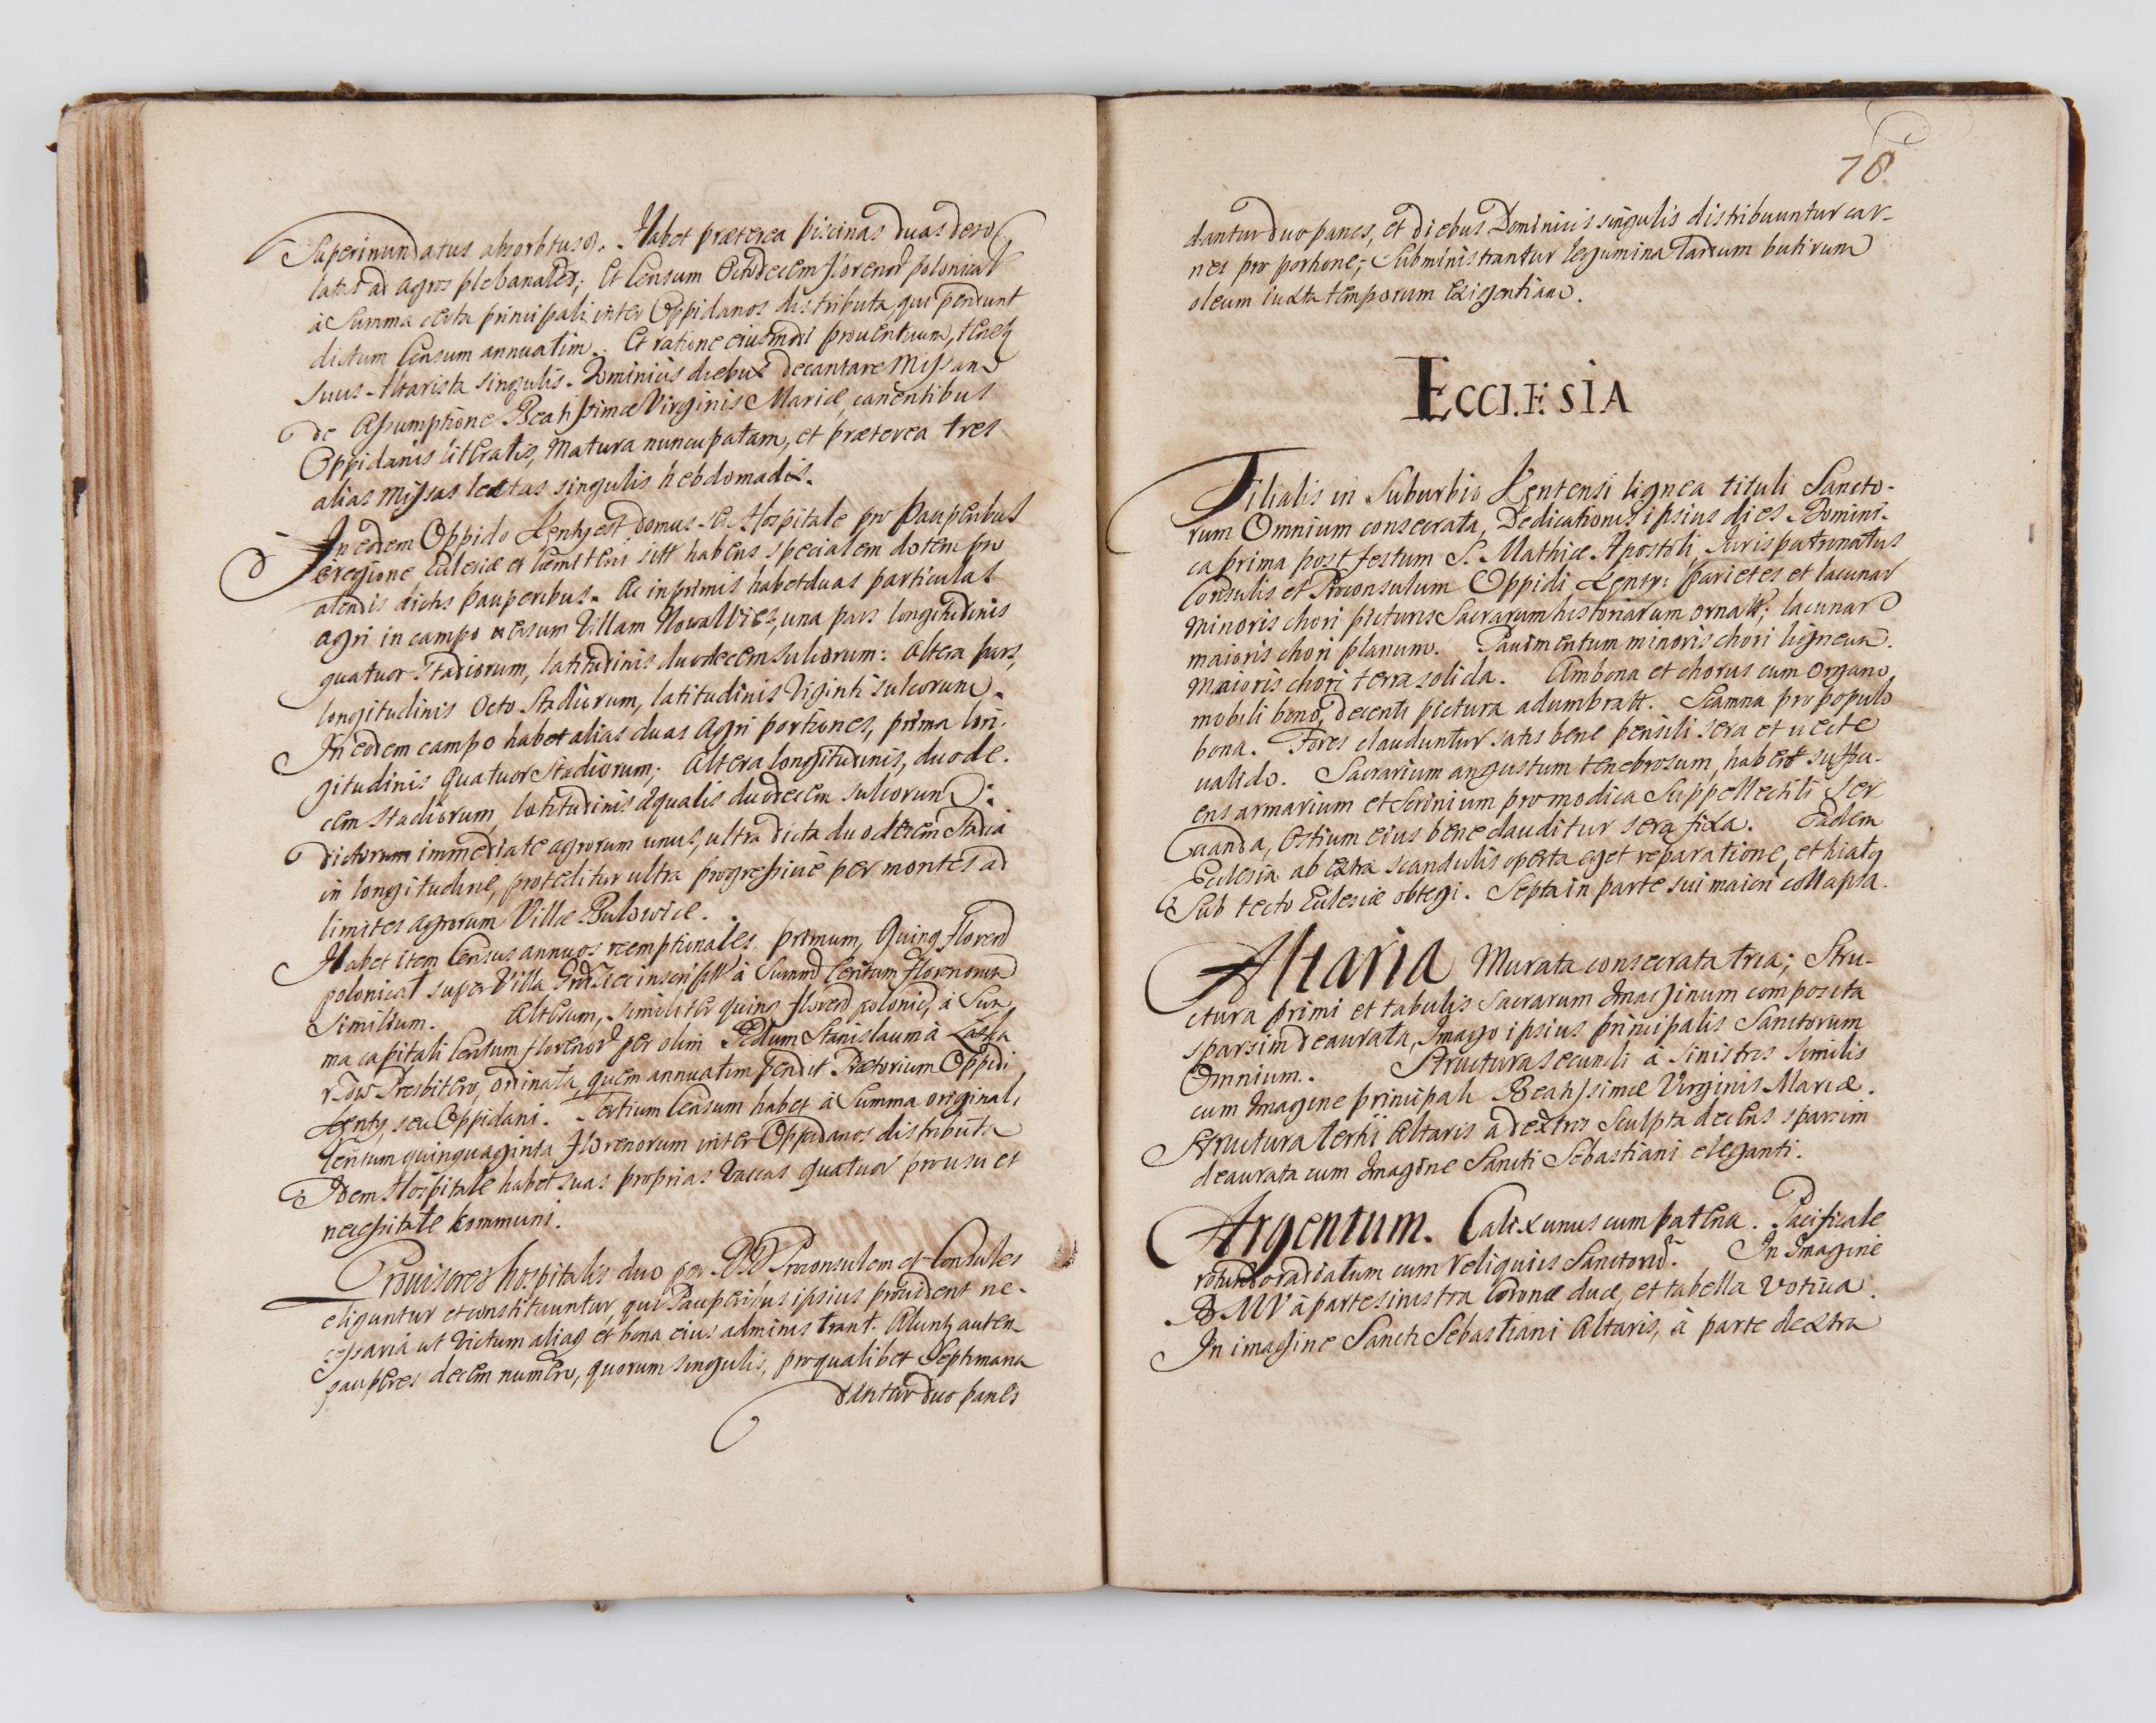 Superinundatus absorbtusq. Habet præterea piscinas duas deso
latas ad agros plebanales; Et Censum Octodecem florenor polonical
à Summa certa principali inter Oppidanos distributa, qui pendunt
dictum Censum annuatim. Et ratione eiusmodi prouentuum, tenetq
suus Altarista singulis Dominicis diebus decantare Missam
de Assumptione Beatissimæ Virginis Mariæ, canentibus
Oppidanis literatis, Matura nuncupatam, et præterea tres
alias Missas lectas singulis hebdomadis.
In eodem Oppido Kenty est domus seu Hospitale pro Pauperibus
è regione Eclesiæ et Cæmiterii habens specialem dotem pro
alendis dictis Pauperibus. Ac inprimis habet duas particulas
agri in campo versum Villam Nowawies, una pars longitudinis
quatuor Stadiorum, latitudinis duodecem sulcorum: Altera pars,
longitudinis Octo Stadiorum, latitudinis Viginti sulcorum.
In eodem campo habet alias duas Agri portiones, prima lon-
gitudinis quatuor Stadiorum; Altera longitudinis, duode-
cem Stadiorum, latitudinis æqualis duodecem sulcorum:
dictorum immediate agrorum unus, ultra dicta duodecem Stadia
in longitudine, proteditur ultra progressiuè per montes ad
limites agrorum Villæ Bulowice.
Habet item Census annuos reemptionales. primum, Quinq floren
polonical super Villa à Summa Centum florenorum
Similium. Alterum, similiter quinq floren polonic, à Sum
ma capitali Centum florenor per olim Stanislaum à
Presbitero, ordinata, quem annuatim pendit Prætorium Oppidi
Kenty, seu Oppidani. Tertium Censum habet à Summa originali
Centum quinquaginta florenorum inter Oppidanos distributa
Idem Hospitale habet suas proprias Vaccas quatuor pro usu et
necessitate Communi.
Prouisores hospitalis duo per DD Proconsulem et Consules
eliguntur et constituuntur, qui Pauperibus ipsius prouident ne-
cessaria ut Victum aliaq et bona eius administrant. Alunt autem
pauperes decem numero, quorum singulis, pro qualibet Septimana
dantur duo panes
78
dantur duo panes, et diebus Dominicis singulis distribuuntur car-
nes pro portione; Subministrantur legumina butirum
oleum iuxta temporum exigentiam.
ECCLESIA
Filialis in Suburbio Kentensi lignea tituli Sancto-
rum Omnium consecrata, Dedicationis ipsius dies Domini-
ca prima post festum S. Mathiæ Apostoli, Iuris patronatus
Consulis et Proconsulum Oppidi Kenty: parietes et lacunar
Minoris chori picturis Sacrarum historiarum ornatt; lacunar
maioris chori planum. Pauimentum minoris chori ligneum.
Maioris chori terra solida. Ambona et chorus cum Organo
mobili bono, decenti pictura adumbratt. Scamna pro populo
bona. Fores clauduntur satis bene pensili sera et uecte
ualido. Sacrarium angustum tenebrosum, habet suffici-
ens armarium et Scrinium pro modica Suppellectili Ser
uanda, Ostium eius bene clauditur sera fixa. Eadem
Ecclesia ab extra scandulis operta eget reparatione, et hiatq
Sub tecto Eclesiæ obtegi. Septa in parte sui maiori collapsa.
Altaria Murata consecrata tria; Stru-
ctura primi et tabulis Sacrarum Imaginum composita
sparsim deaurata, Imago ipsius principalis Sanctorum
Omnium. Structura secundi à sinistris similis
cum Imagine principali Beatissimæ Virginis Mariæ.
Structura tertii Altaris à dextris Sculpta decens sparsim
deaurata cum Imagine Sancti Sebastiani eleganti.
Argentum. Calix unus cum patena. Pacificale
rotundo radiatum cum reliquiis Sanctorū. In Imagine
B MV à parte sinistra Coronæ duæ, et tabella Votiua.
In imagine Sancti Sebastiani Altaris, à parte dextra